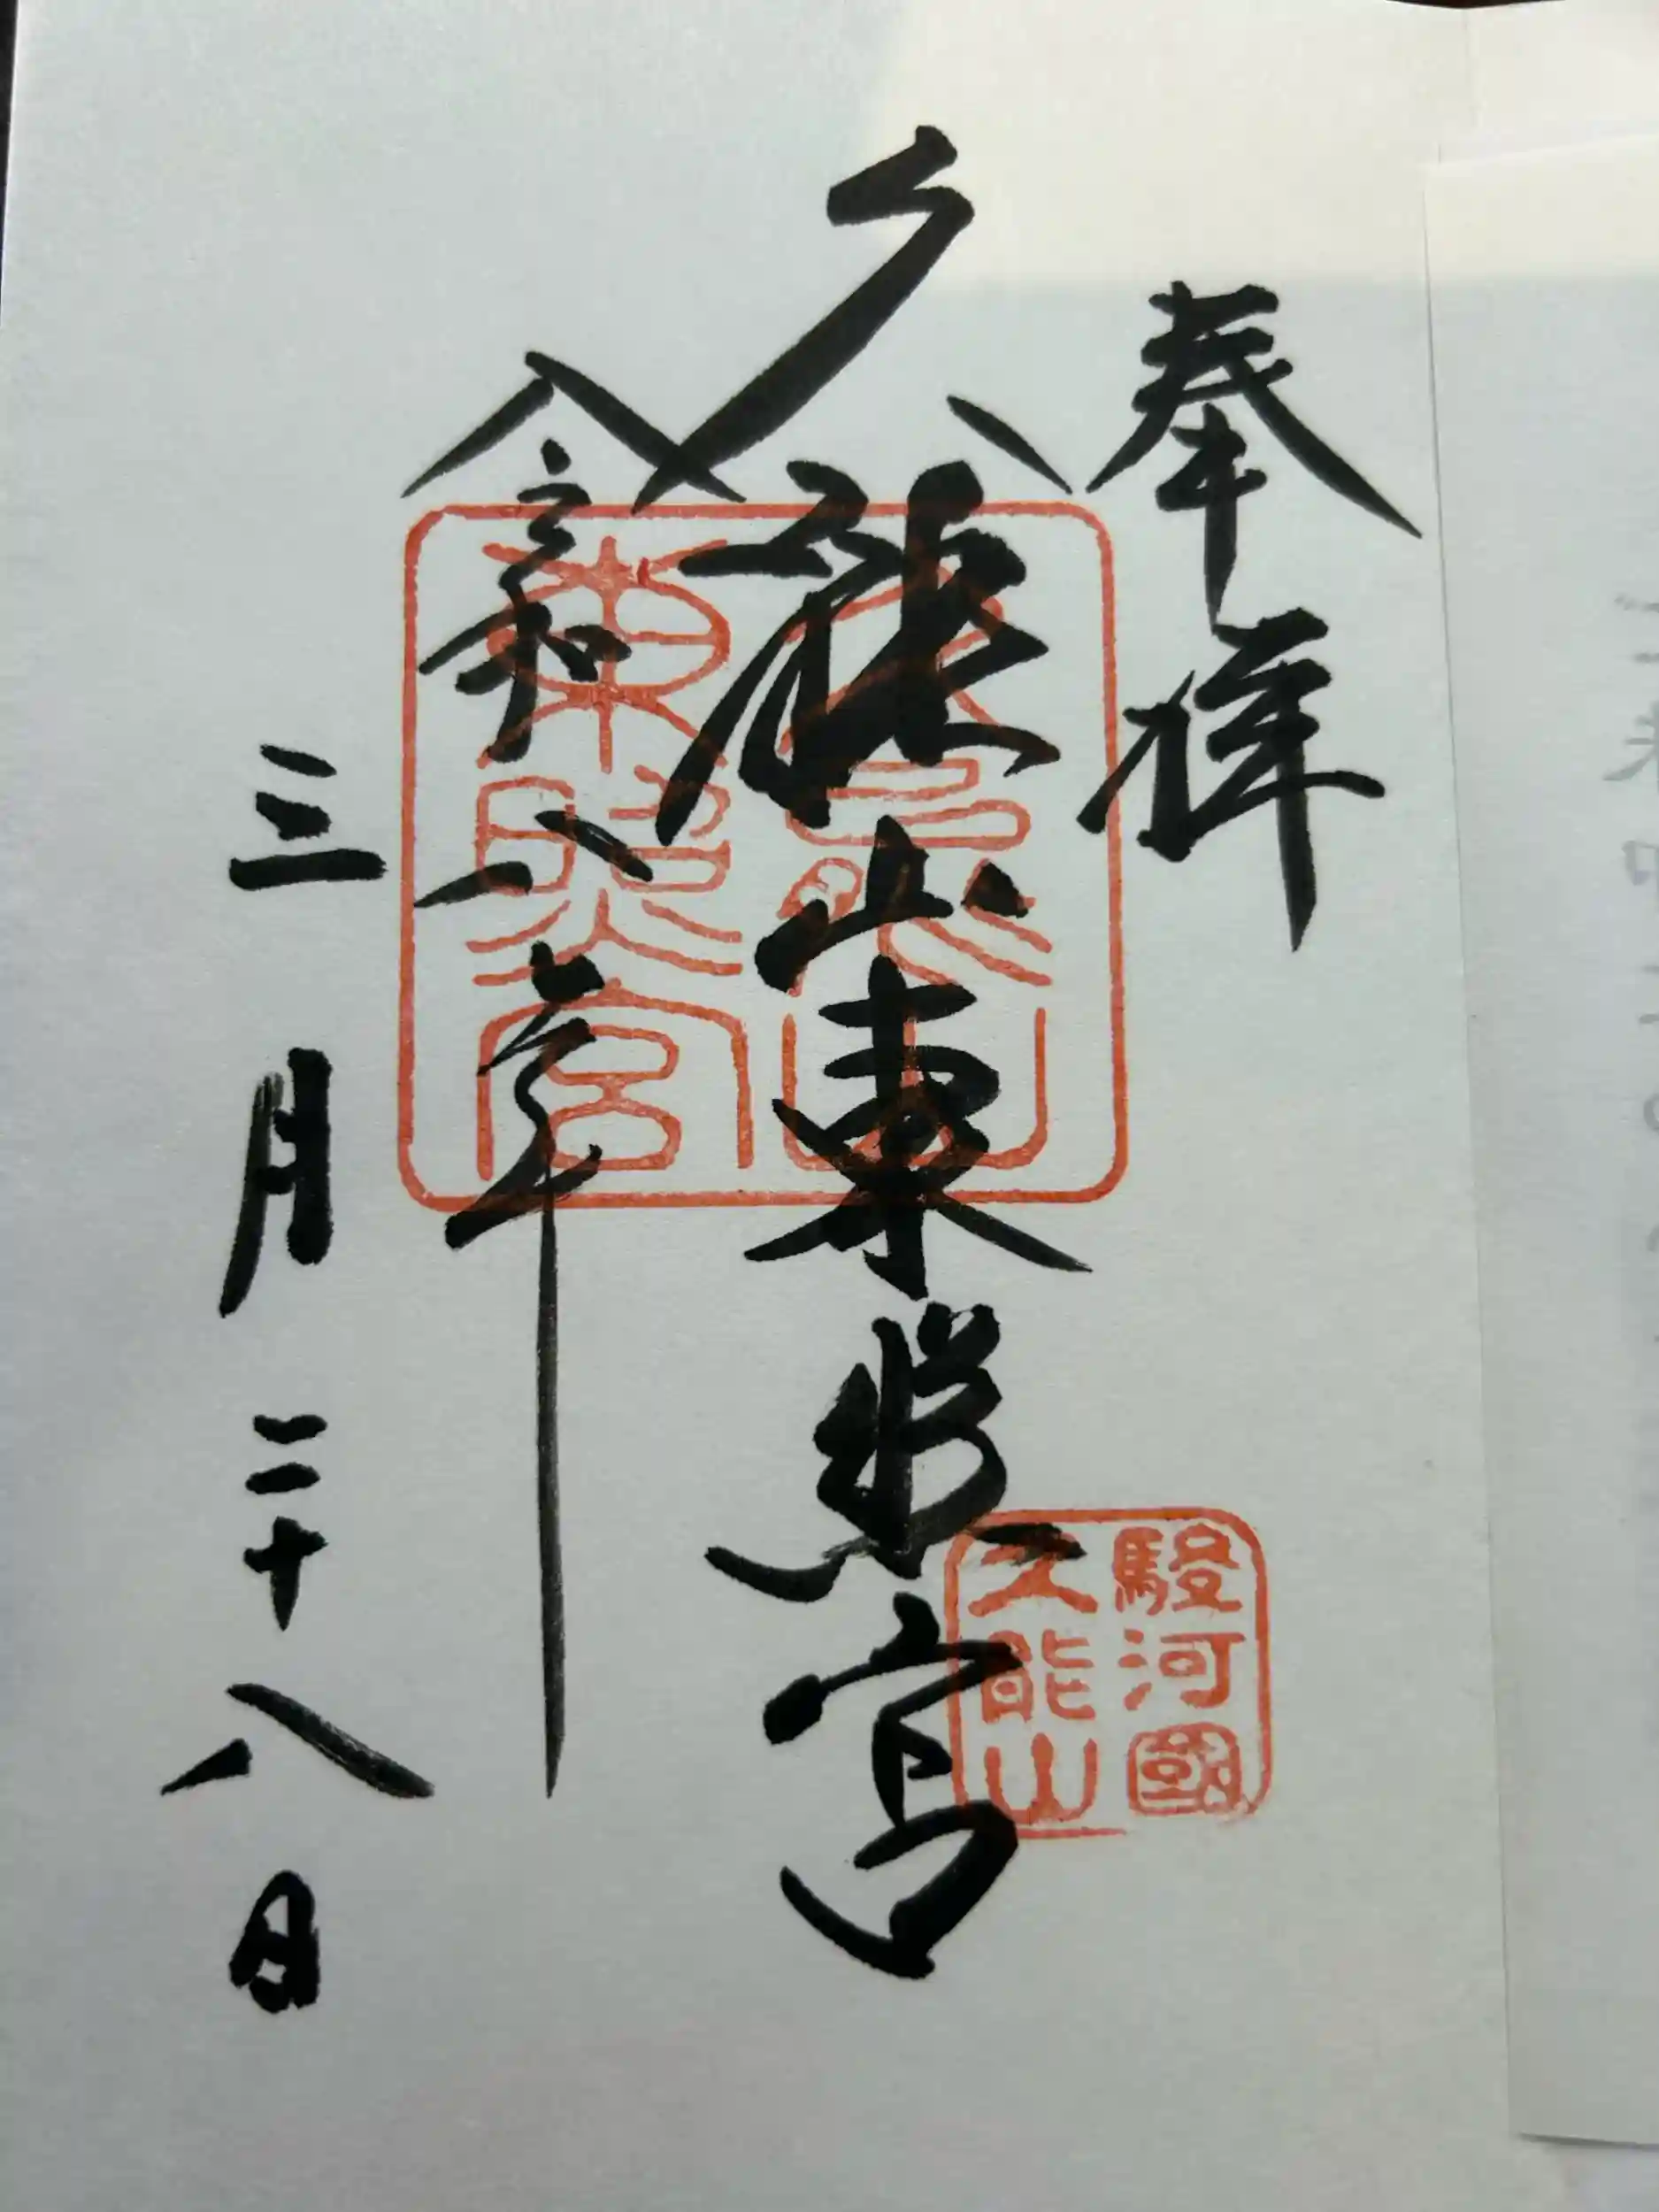 奉拝
久能山東照宮
令和八年
三月二十八日
久能山
東照宮
駿河國
久能山